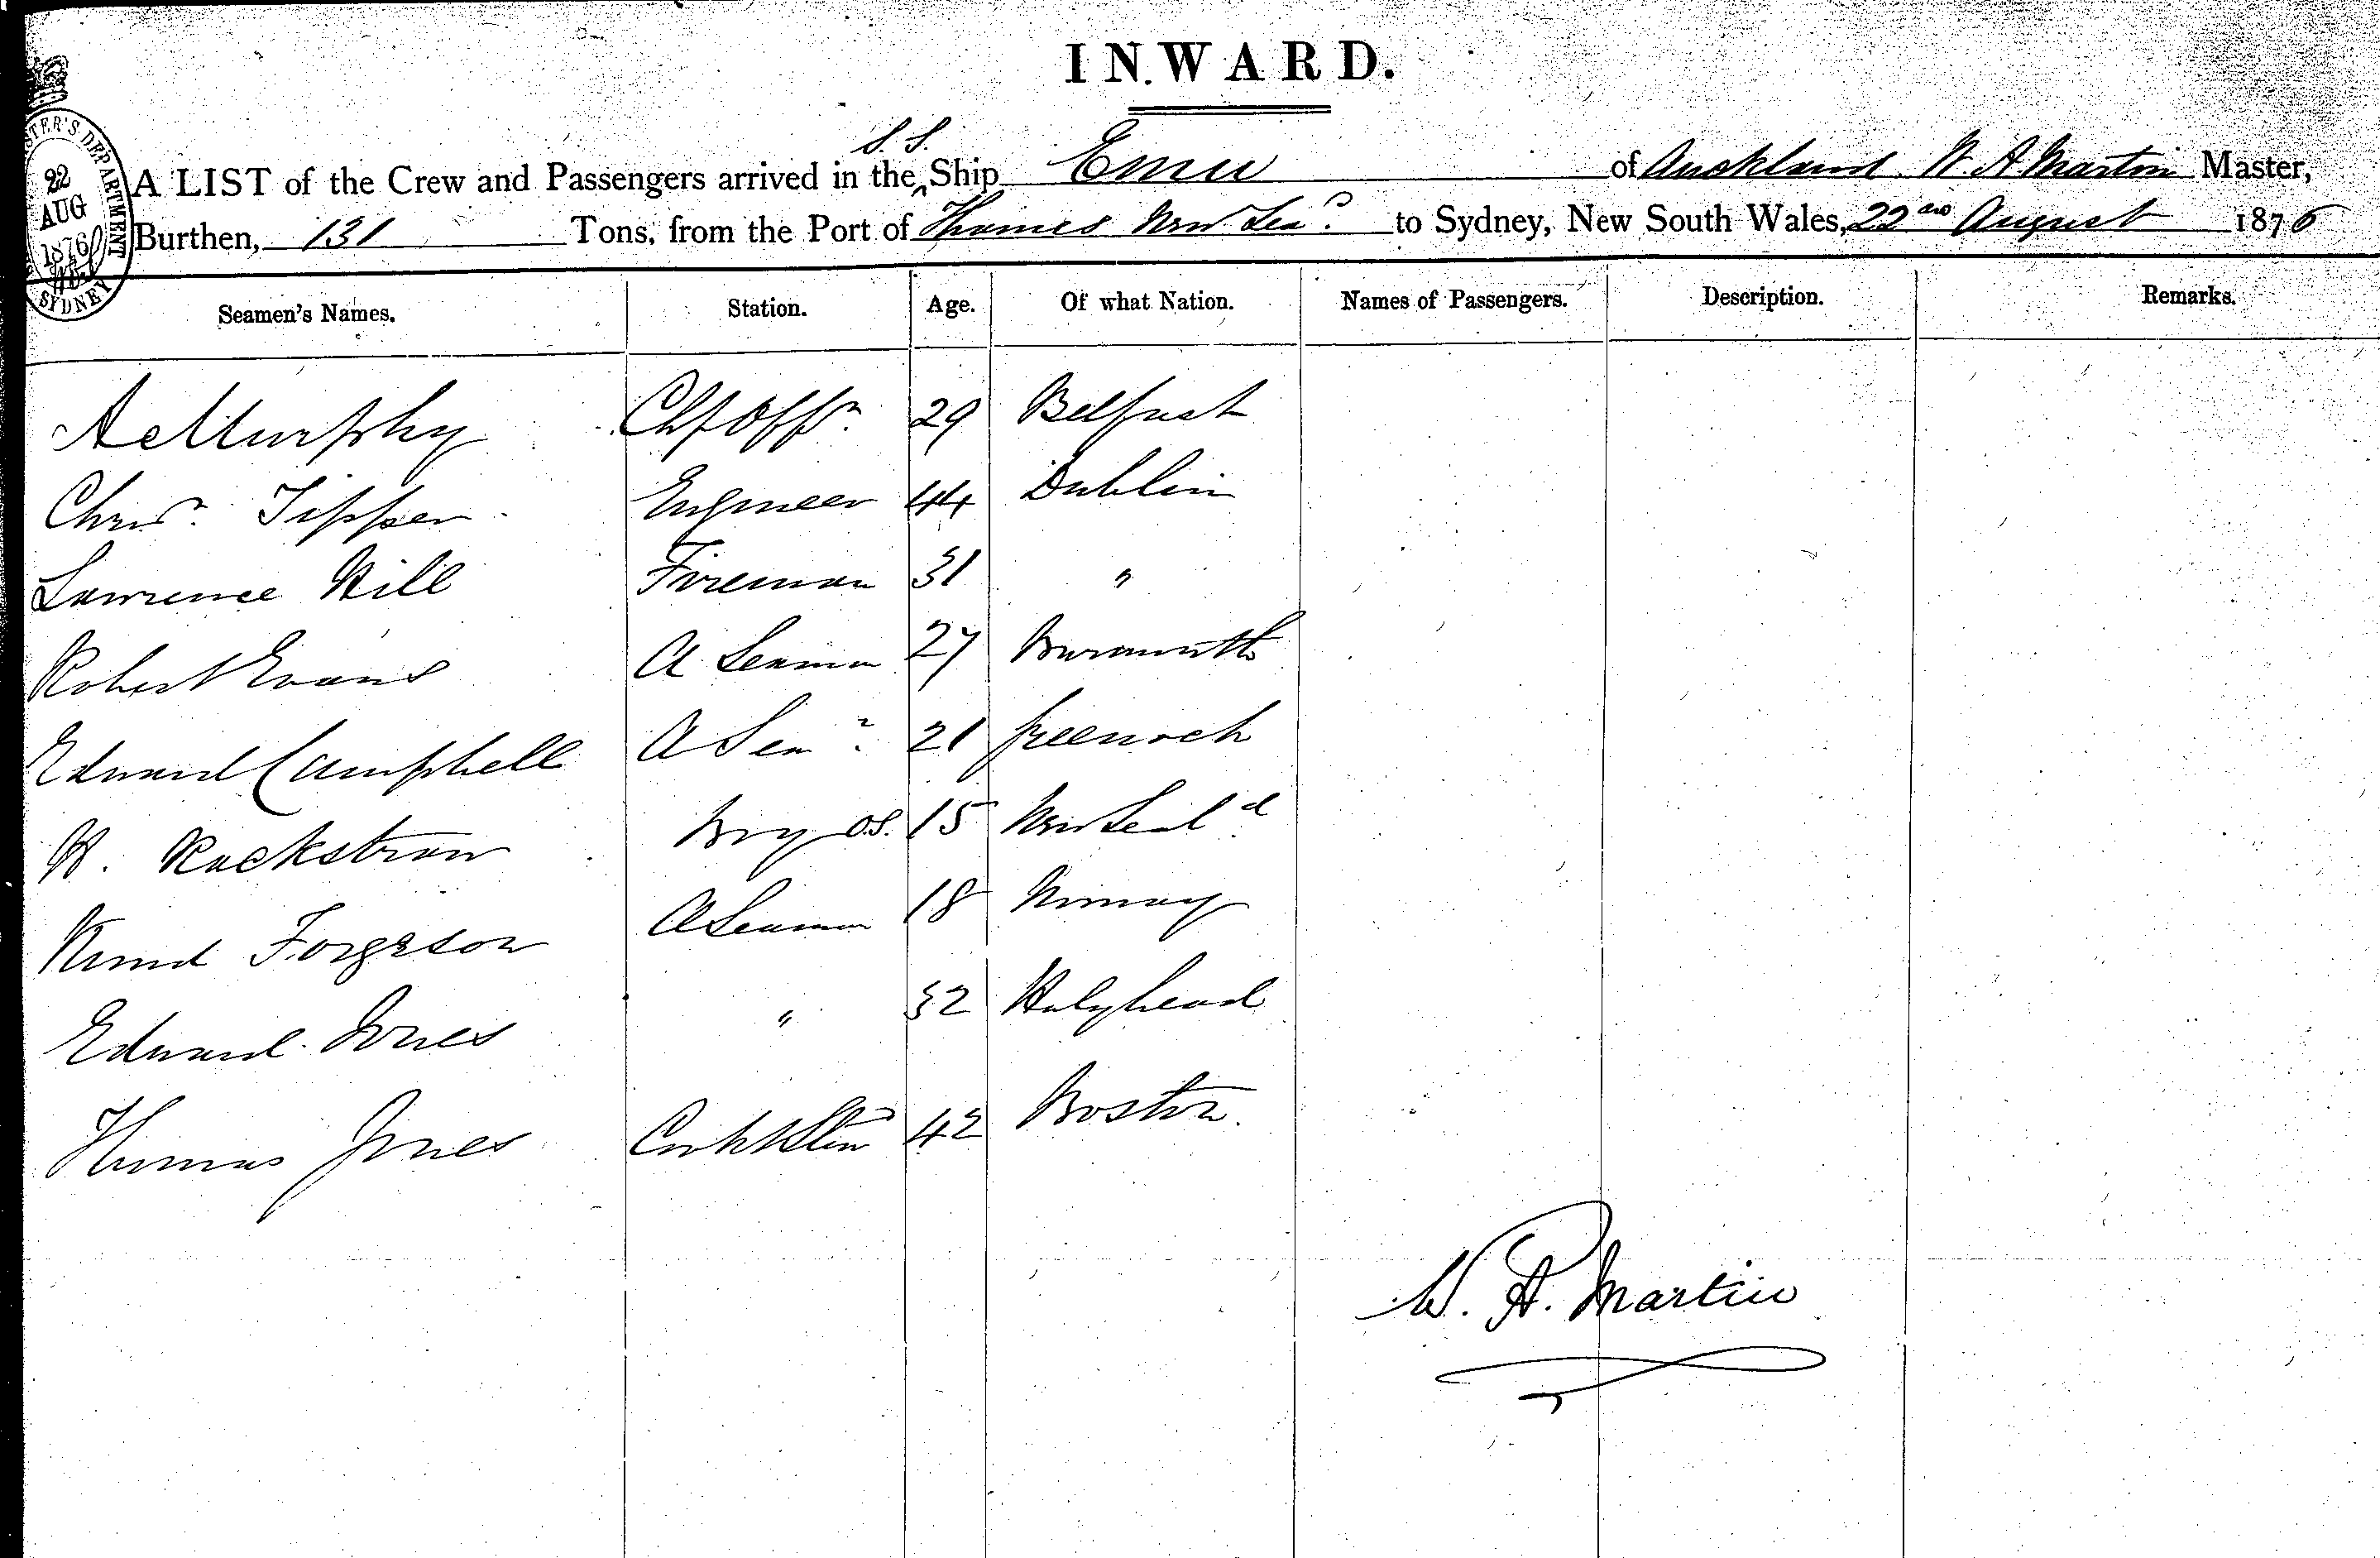 INWARD.
S.S.
A LIST of the Crew and Passengers arrived in the ^ Ship Emu of Auckland W. A. Martin Master,
Burthen, 131 Tons, from the Port of Thames New Zea.d to Sydney, New South Wales, 22nd August 1876
22 AUG 1876
SYDNEY
Seamen's Names. Station. Age. Of what Nation. Names of Passengers. Description. Remarks.
A Murphy Chf Offr. 29 Belfast
Chrisr. Tipper Engineer 44 Dublin
Lawrence Hill Fireman 31 "
Robert Evans A Seaman 27
Edward Campbell A Sean. 21 Greenock
H. Rackstraw Boy O.S. 15 New Zeald.
Knud Forgeson A Seaman 18 Norway
Edward Jones " 32 Holyhead
Thomas Jones Cook & Stewd 42 Boston.
W. A. Martin